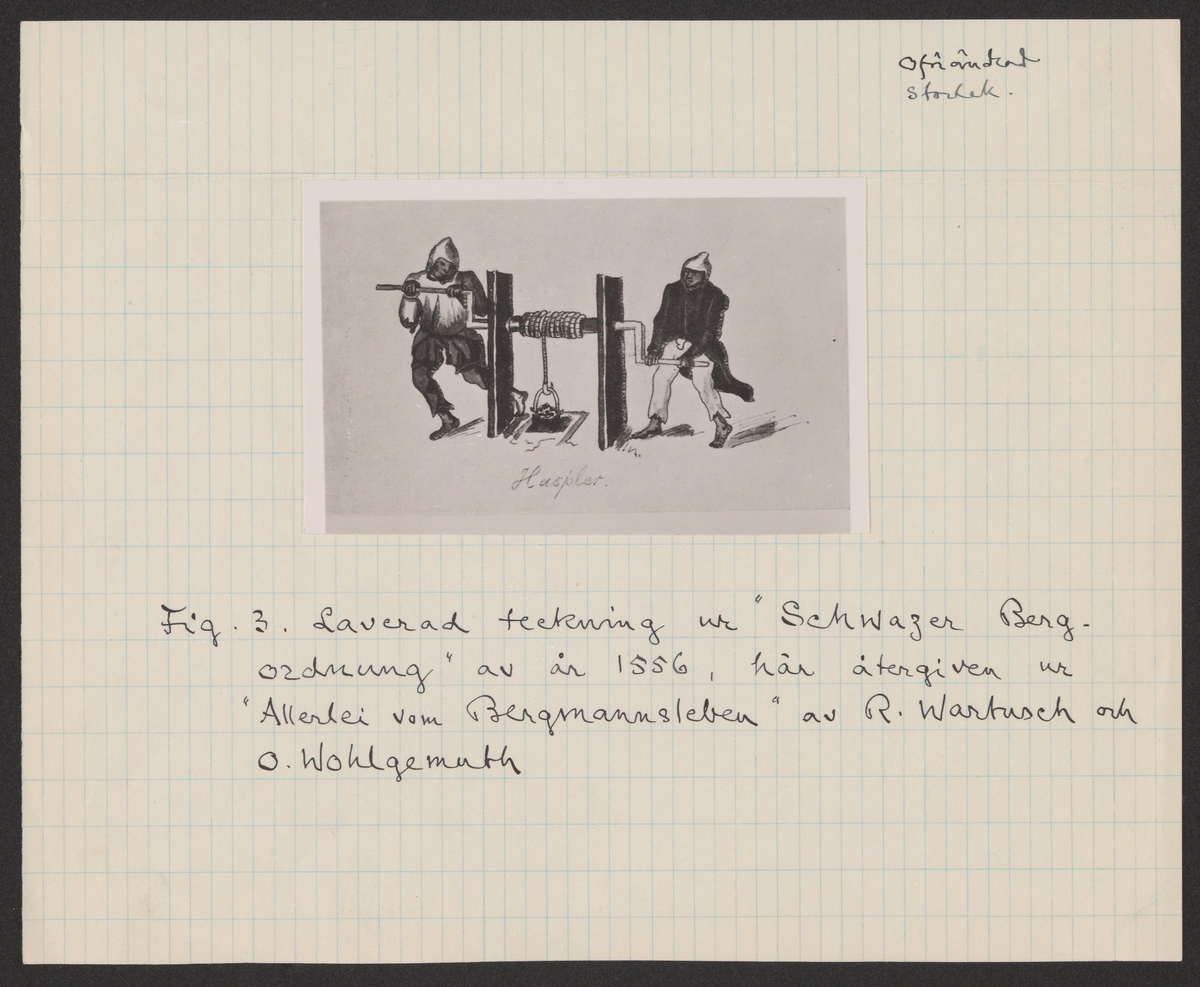 Oförändrad
Storlek.
Haspler.
Fig. 3. Laverad teckning ur "Schwazer Berg-
ordnung" av år 1556, här återgiven ur
"Allerlei vom Bergmannsleben" av R. Wartusch och
O. Wohlgemuth